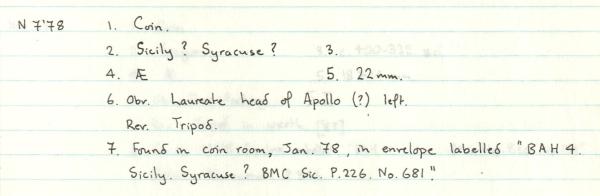 N 7'78 1. Coin.
2. Sicily? Syracuse? 3.
4. Æ 5. 22 mm.
6. Obv. Laureate head of Apollo (?) left.
Rev. Tripod.
7. Found in coin room, Jan. 78, in envelope labelled "BAH 4.
Sicily. Syracuse? BMC Sic. P.226. No. 681".